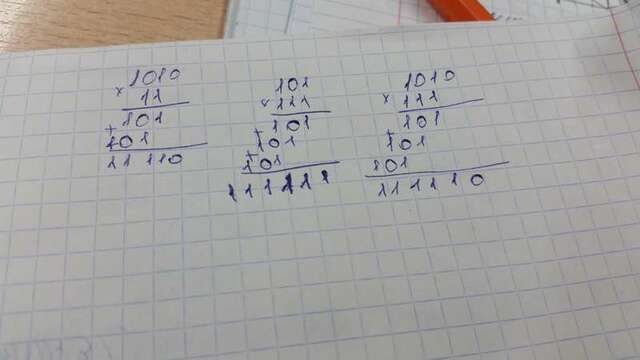 1010
× 11
101
+ 101
11110
101
× 111
101
+ 101
+ 101
111111
1010
× 111
101
+ 101
101
111110